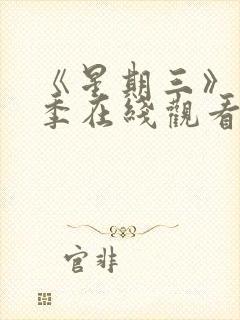 《星期三》
季在綫觀看
官非